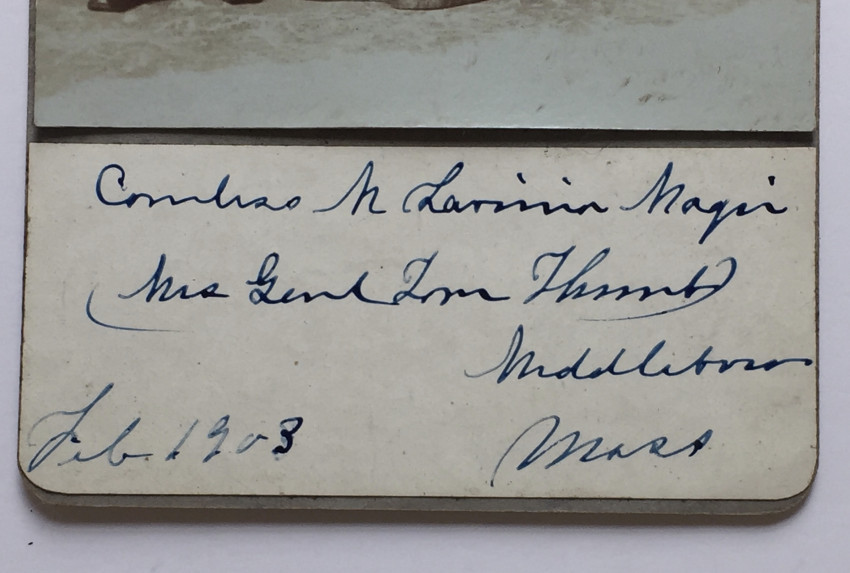 Countess M Lavinia Magri
(Mrs Genl Tom Thumb)
Middleboro
Feb. 1903 Mass